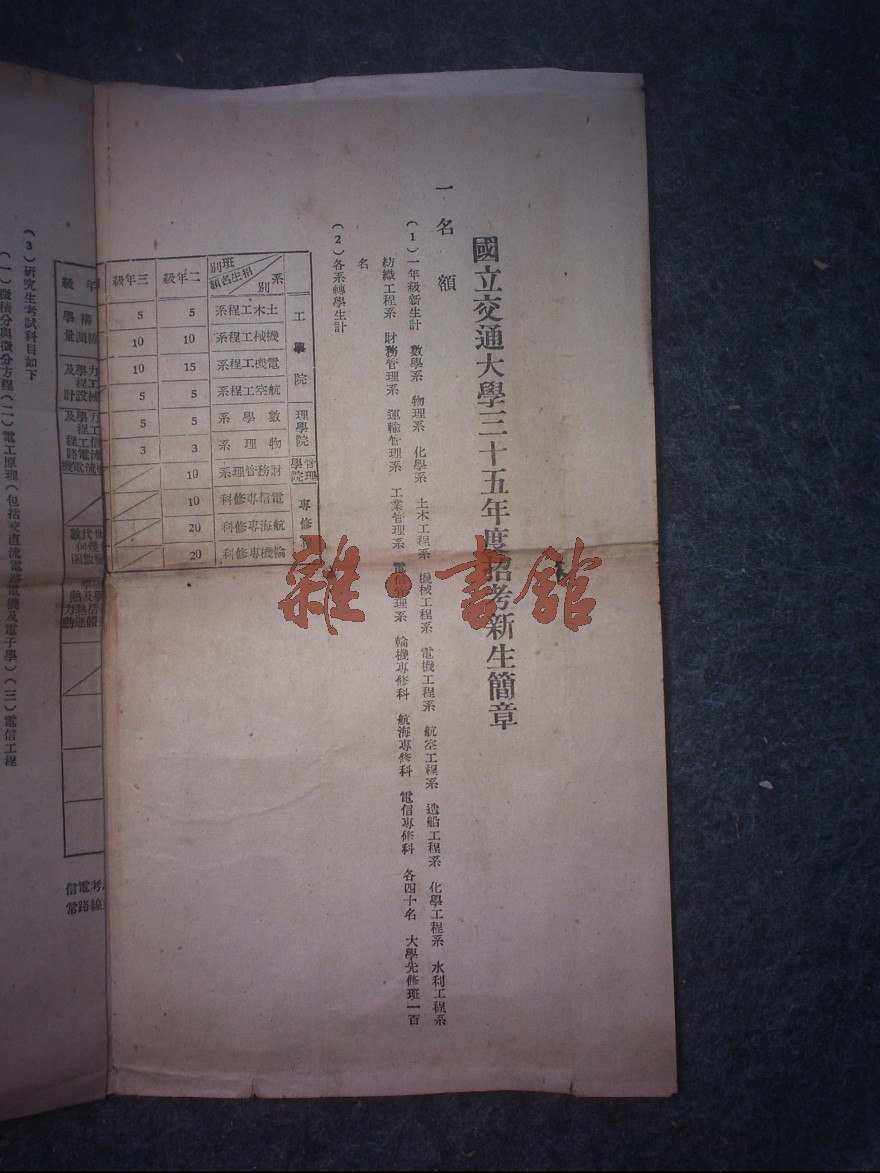 國立交通大學三十五年度招考新生簡章
一 名 額
(1) 一年級新生計 數學系 物理系 化學系 土木工程系 機械工程系 電機工程系 航空工程系 造船工程系 化學工程系 水利工程系
紡織工程系 財務管理系 運輸管理系 工業管理系 電信管理系 輪機專修科 航海專修科 電信專修科 各四十名 大學先修班一百
名
(2) 各系轉學生計
系別 招生名額 班別 二年級 三年級
工學院 土木工程系 5 5
機械工程系 10 10
電機工程系 15 10
航空工程系 5 5
理學院 數學系 5 5
物理系 3 3
管理學院 財務管理系 10
專修科 電信專修科 10
航海專修科 20
輪機專修科 20
雜·書館
(3) 研究生考試科目如下
(一) 微積分與微分方程 (二) 電工原理 (包括交直流電路電機及電子學) (三) 電信工程